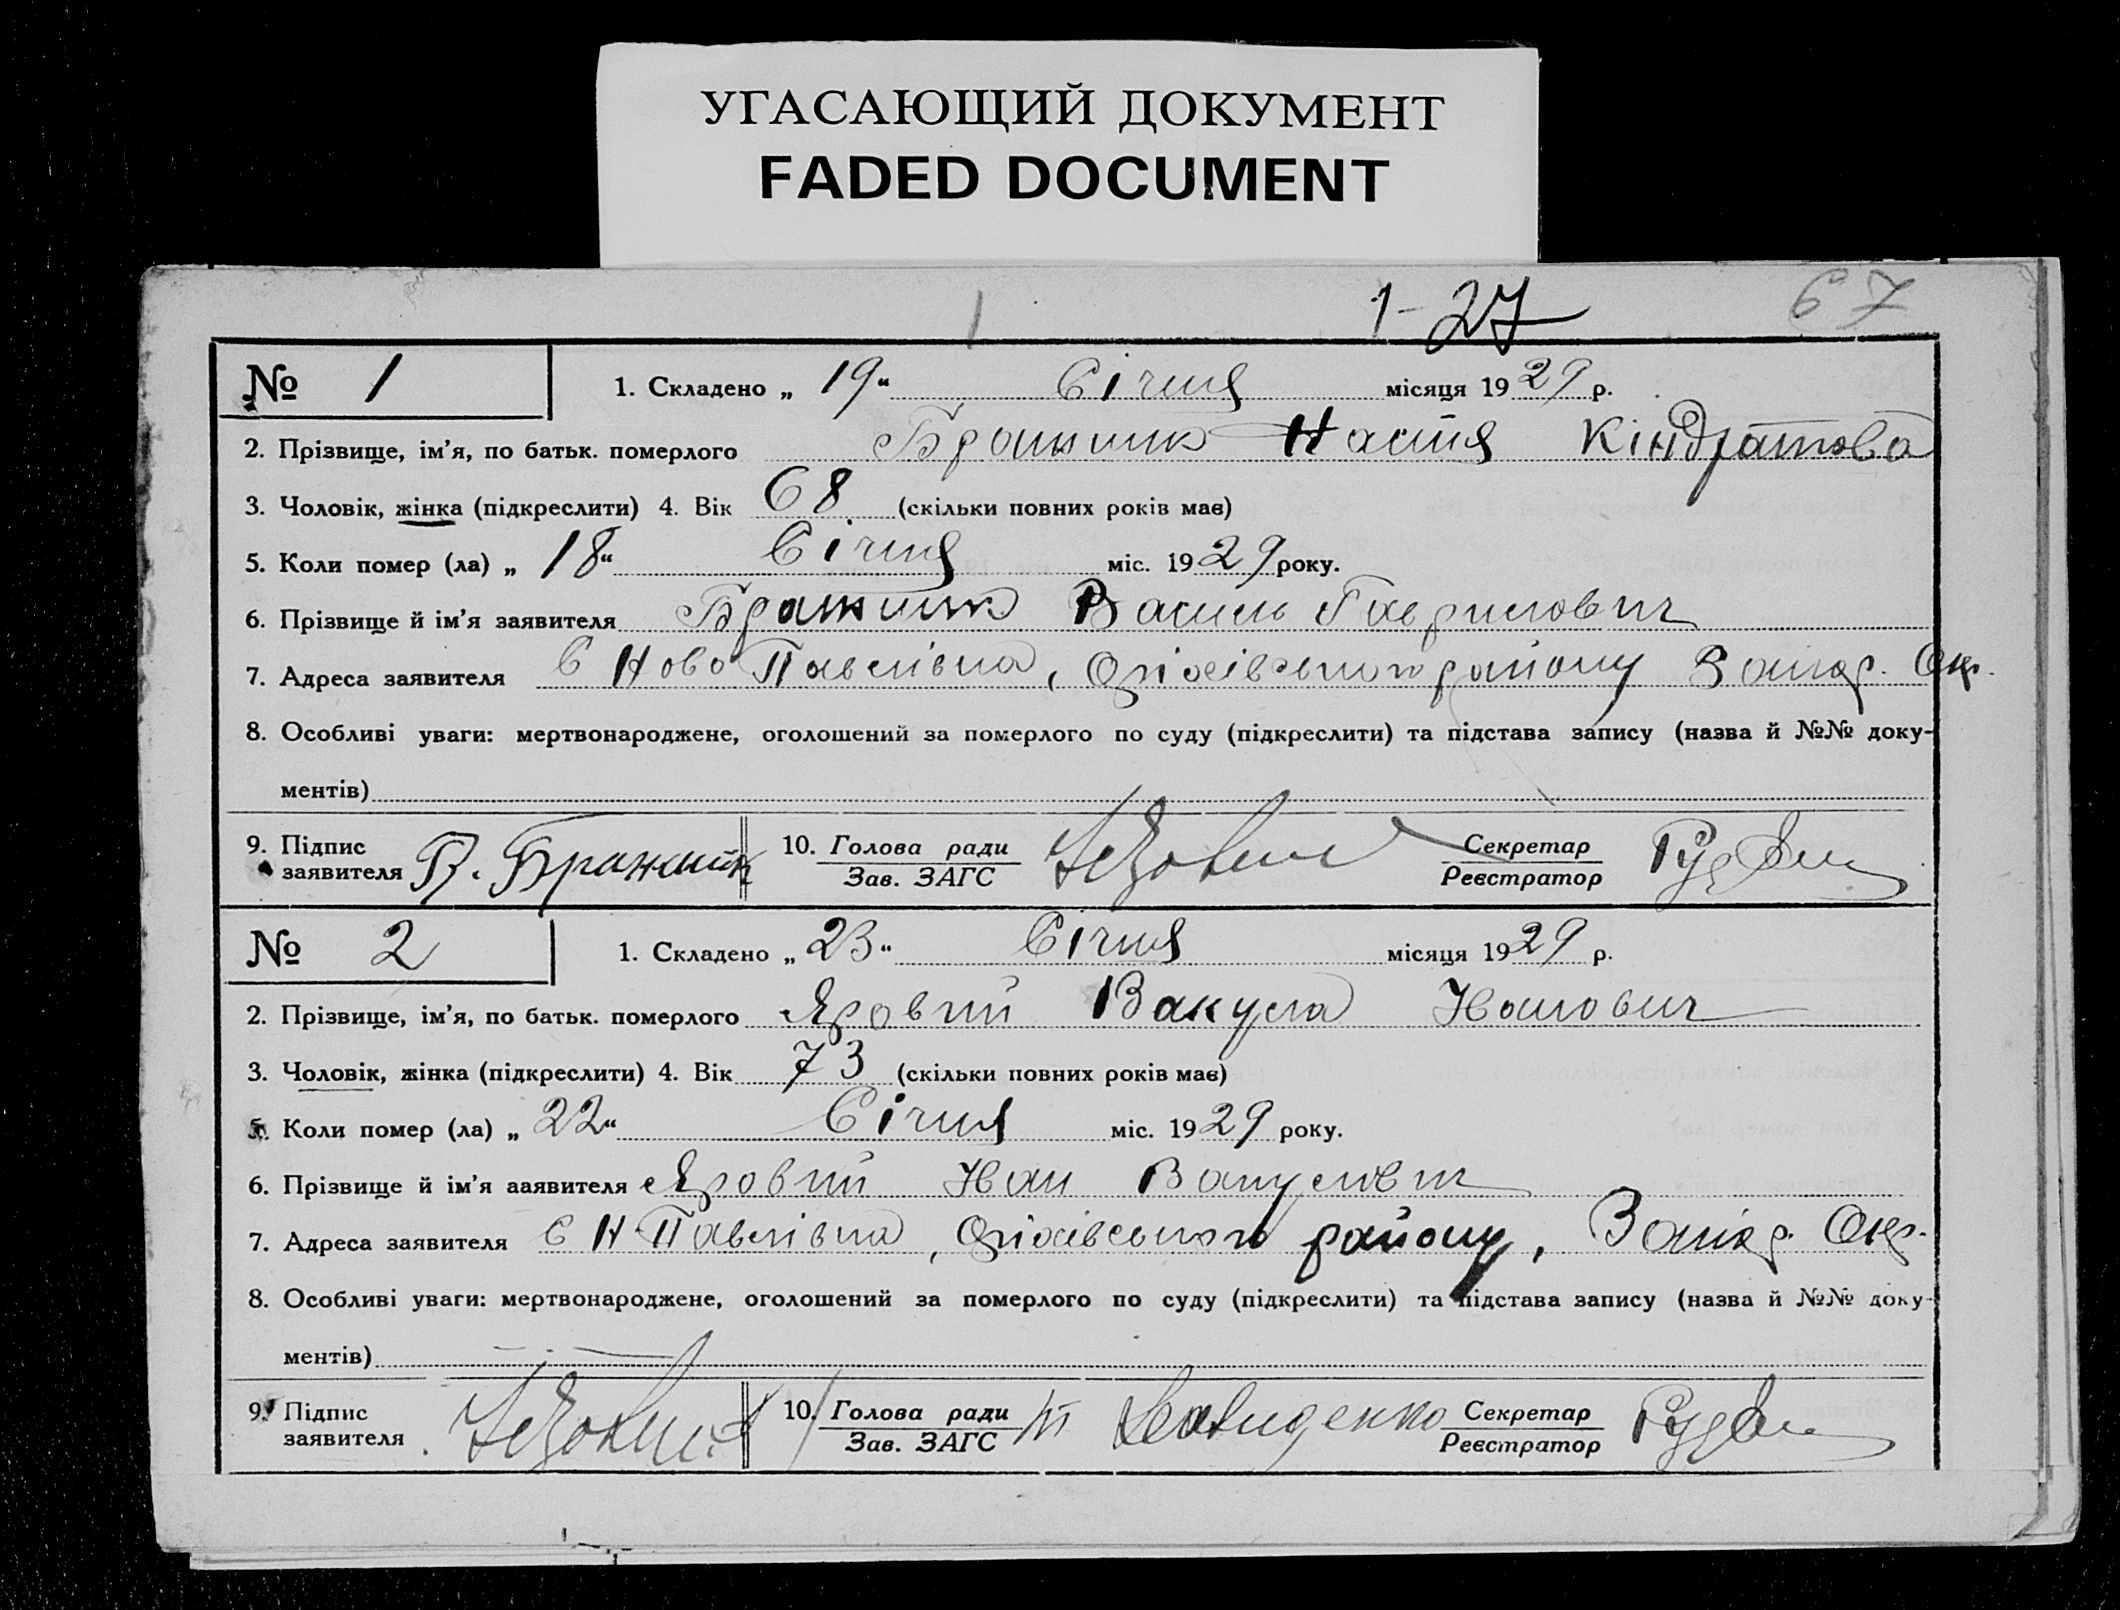 УГАСАЮЩИЙ ДОКУМЕНТ
FADED DOCUMENT
1-27 67
№ 1 1. Складено „ 19 “ Січня місяця 1929 р.
2. Прізвище, ім'я, по батьк. померлого Бражник Настя Кіндратова
3. Чоловік, жінка (підкреслити) 4. Вік 68 (скільки повних років має)
5. Коли помер (ла) „ 18 “ Січня міс. 1929 року.
6. Прізвище й ім'я заявителя Бражник Василь Гаврилович
7. Адреса заявителя С Ново Павлівка, Оріхівського району Запор. Окр.
8. Особливі уваги: мертвонароджене, оголошений за померлого по суду (підкреслити) та підстава запису (назва й №№ доку-
ментів)
9. Підпис заявителя В. Бражник 10. Голова ради Зав. ЗАГС Секретар Реєстратор
№ 2 1. Складено „ 23 “ Січня місяця 1929 р.
2. Прізвище, ім'я, по батьк. померлого Яровий Вакула Іванович
3. Чоловік, жінка (підкреслити) 4. Вік 73 (скільки повних років має)
5. Коли помер (ла) „ 22 “ Січня міс. 1929 року.
6. Прізвище й ім'я ааявителя Яровий Іван Вакулович
7. Адреса заявителя С Н Павлівка, Оріхівського району, Запор. Окр.
8. Особливі уваги: мертвонароджене, оголошений за померлого по суду (підкреслити) та підстава запису (назва й №№ доку-
ментів)
9. Підпис заявителя 10. Голова ради Зав. ЗАГС Секретар Реєстратор